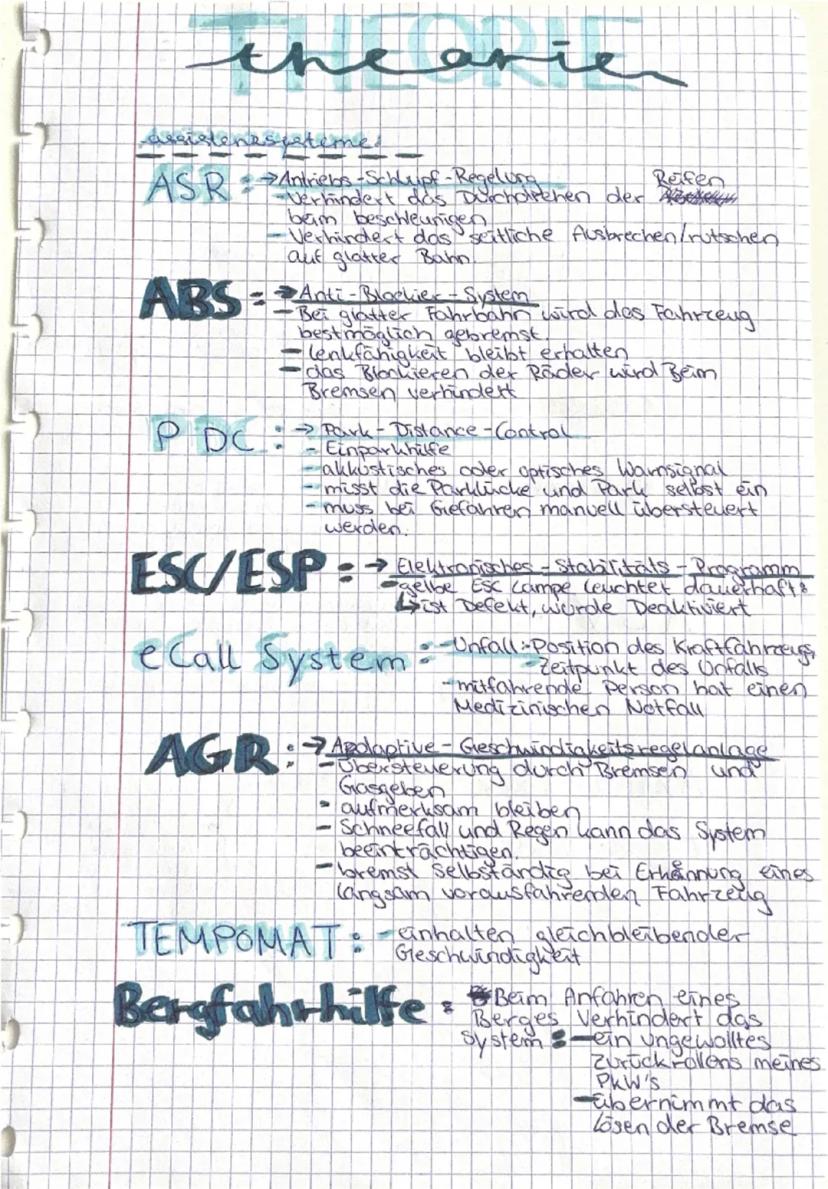 THEORIE
theorie
assistenzsysteme:
ASR: → Antriebs-Schlupf-Regelung
- Verhindert das Durchdrehen der Reifen
beim beschleunigen
- Verhindert das seitliche Ausbrechen/rutschen
auf glatter Bahn.
ABS: → Anti-Blockier-System
- Bei glatter Fahrbahn wird das Fahrzeug
bestmöglich gebremst.
- lenkfähigkeit bleibt erhalten
- das Blockieren der Räder wird Beim
Bremsen verhindert
PDC: → Park-Distance-Control
- Einparkhilfe
- akkustisches oder optisches Warnsignal
- misst die Parklücke und Park selbst ein
- muss bei Gefahren manuell übersteuert
werden.
ESC/ESP: → Elektronisches-Stabilitäts-Programm
- gelbe ESC Lampe leuchtet dauerhaft:
↳ ist Defekt, wurde Deaktiviert
eCall System: - Unfall: - Position des Kraftfahrzeugs
- Zeitpunkt des Unfalls
- mitfahrende Person hat einen
Medizinischen Notfall
AGR: → Adaptive-Geschwindigkeitsregelanlage
- Übersteuerung durch Bremsen und
Gasgeben
- aufmerksam bleiben
- Schneefall und Regen kann das System
beeinträchtigen.
- bremst selbständig bei Erkennung eines
langsam vorausfahrenden Fahrzeug
TEMPOMAT: - einhalten gleichbleibender
Geschwindigkeit
Bergfahrhilfe: Beim Anfahren eines
Berges Verhindert das
System: - ein ungewolltes
zurückrollens meines
PKW's
- übernimmt das
lösen der Bremse